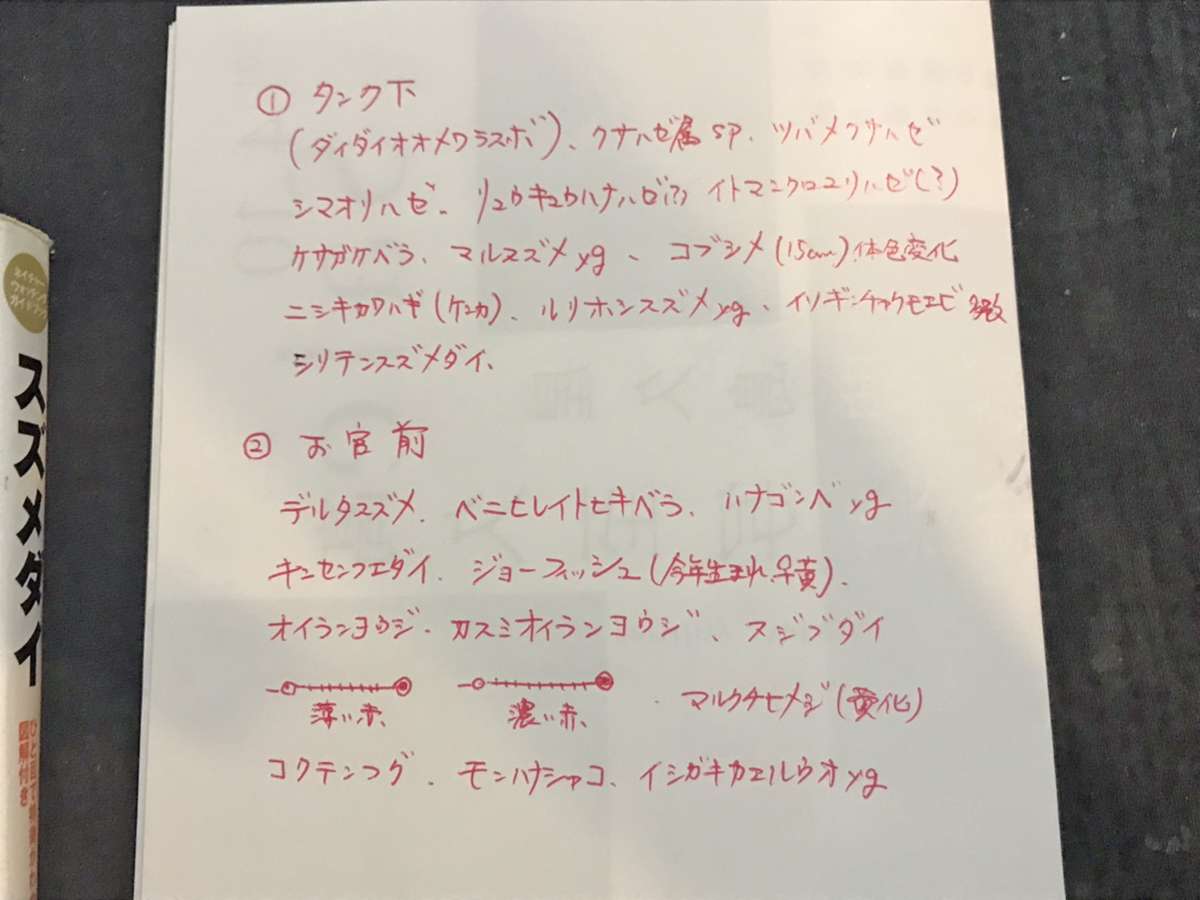 ① タンク下
(ダイダイオオメワラスボ)、クサハゼ属sp. ツバメクサハゼ
シマオリハゼ、リュウキュウハナハゼ(?) イトマンクロユリハゼ(?)
ケサガケベラ、マルスズメyg、コブシメ(15cm)体色変化
ニシキカワハギ(ケンカ)、ルリホシスズメyg、イソギンチャクモエビ 多数
シリテンスズメダイ、
② お宮前
デルタスズメ、ベニヒレイトヒキベラ、ハナゴンベyg
キンセンフエダイ、ジョーフィッシュ(今年生まれ、早黄)、
オイランヨウジ、カスミオイランヨウジ、スジブダイ
薄い赤、 濃い赤、 マルクチヒメジ(黄化)
コクテンフグ、モンハナシャコ、イシガキカエルウオyg
ネイチャー
ウオッチング
ガイドブック
スズメダイ
ひと目で特徴がわかる
図解付き